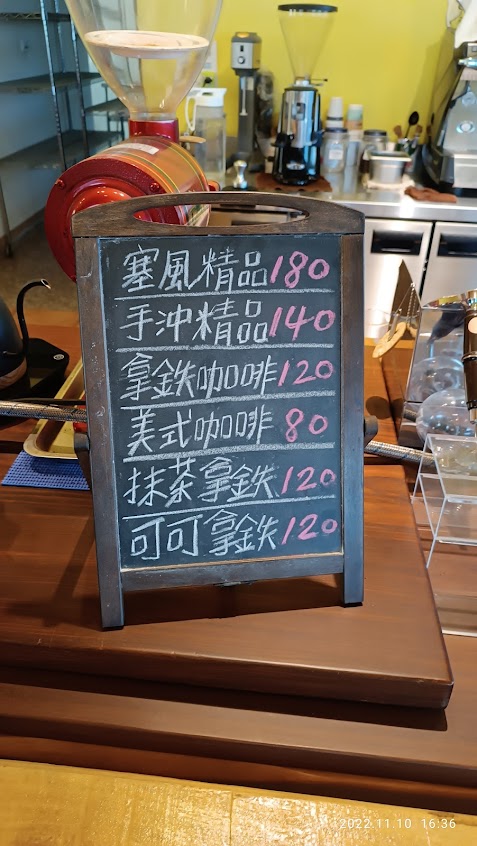 塞風精品180
手沖精品140
拿鉄咖啡120
美式咖啡80
抹茶拿鉄120
可可拿鉄120
2022.11.10 16:36